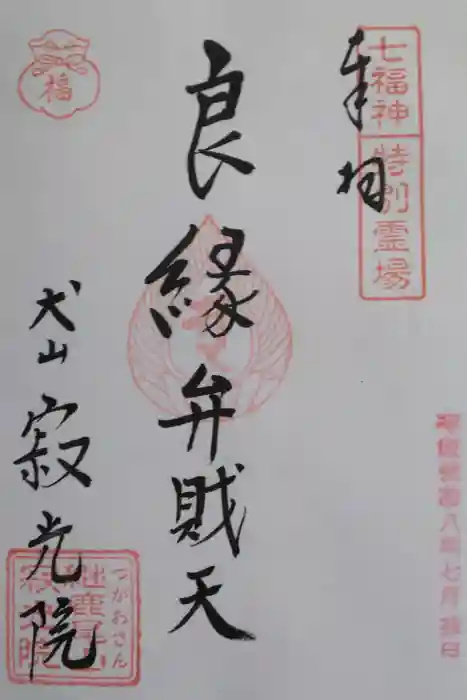 七福神
特別霊場
奉拝
福
良縁弁財天
犬山 寂光院
つがおさん
継鹿尾
寂光院
八年七月